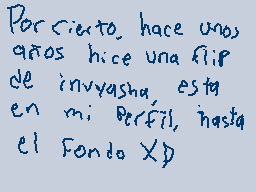 Por cierto, hace unos
años hice una flip
de invyasha, esta
en mi Perfil, hasta
el Fondo XD